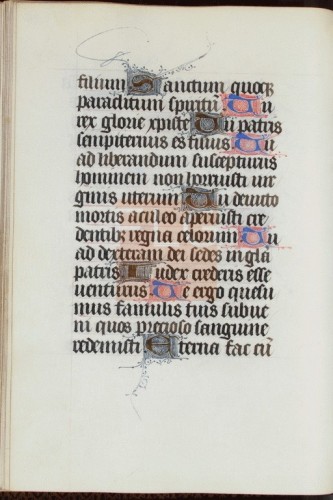 filium Sanctum quoq;
paraclitum spiritū Tu
rex glorie xpiste Tu patris
sempiternus es filius Tu
ad liberandum suscepturus
hominem non horruisti vir
ginis uterum Tu devicto
mortis aculeo aperuisti cre
dentib; regna celorum Tu
ad dexteram dei sedes in glā
patris Iudex crederis esse
venturus Te ergo quesu
mus famulis tuis subve
ni quos precioso sanguine
redemisti Eterna fac cū